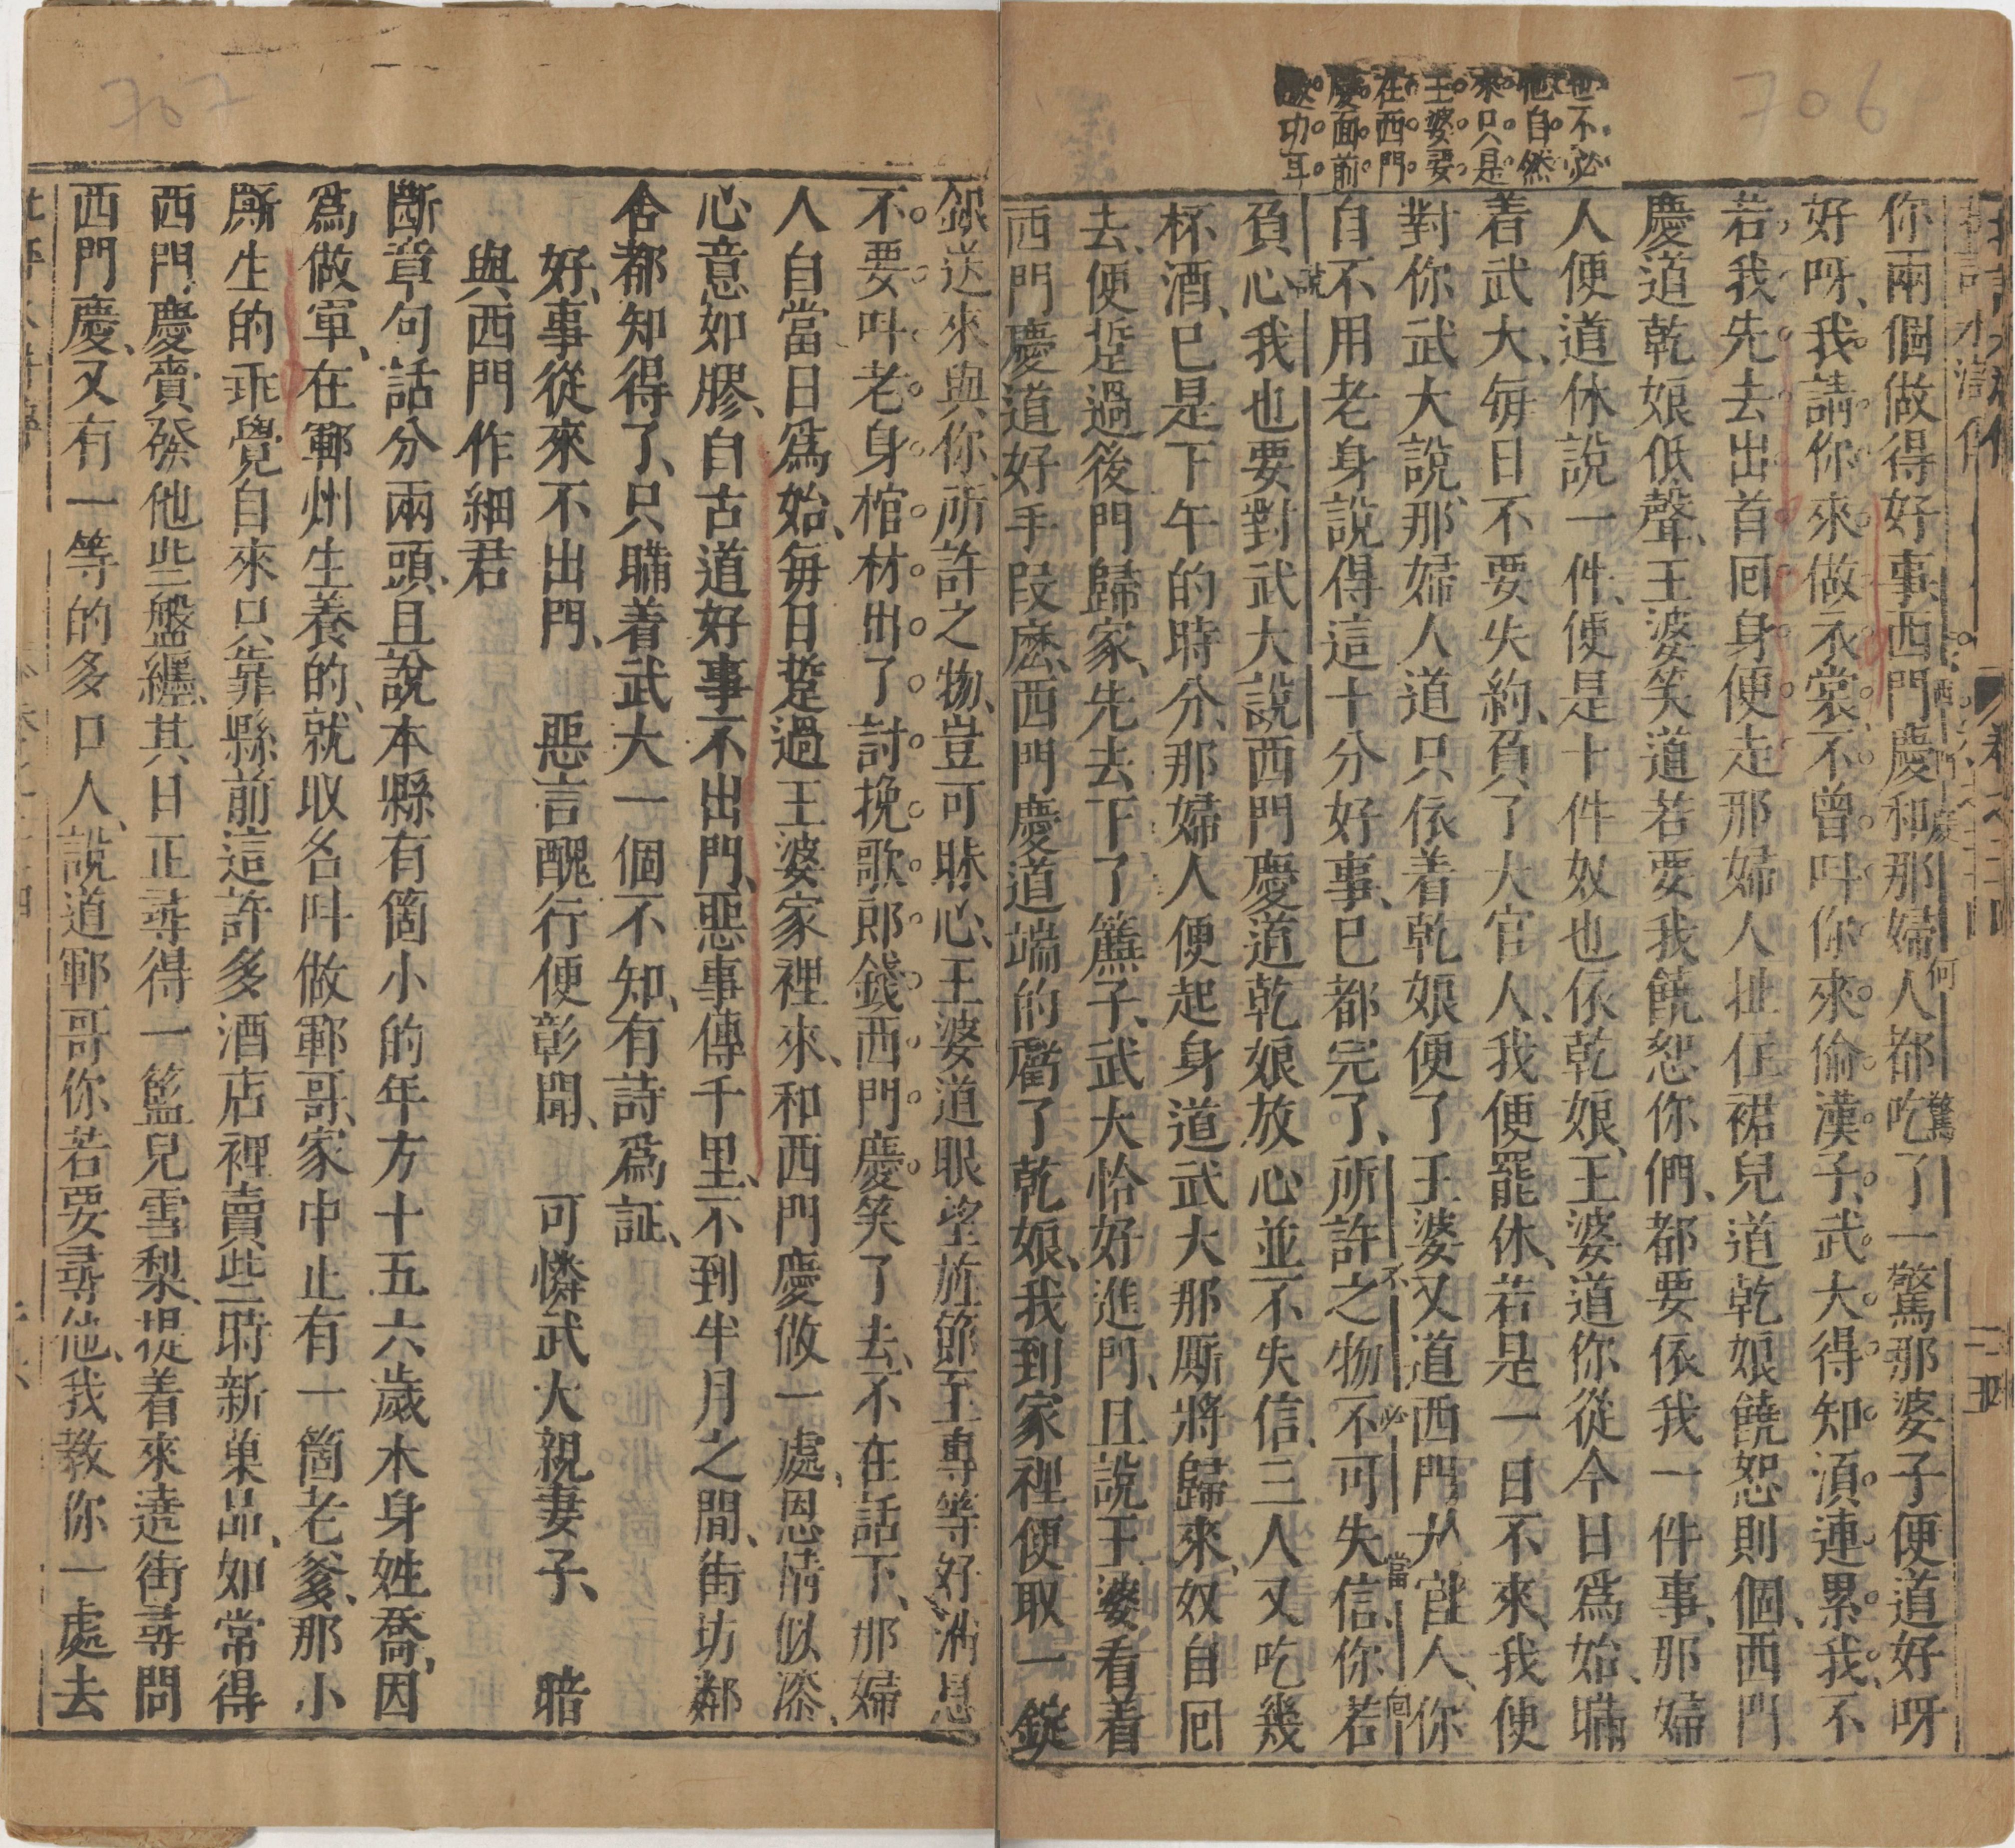 706
也不必
他自然
來只是
王婆要
在西門
慶面前
功耳
批評水滸傳 卷之二十四
你兩個做得好事西門慶和那婦人都吃了一驚那婆子便道好呀
西門慶何驚
好呀、我請你來做衣裳、不曾呌你來偷漢子、武大得知、須連累我、不
若我先去出首回身便走那婦人扯住裙兒道乾娘饒恕則個、西門
慶道乾娘低聲、王婆笑道若要我饒恕你們、都要依我一件事、那婦
人便道休說一件、便是十件奴也依乾娘、王婆道你從今日為始、瞞
着武大、每日不要失約、負了大官人、我便罷休、若是一日不來、我便
對你武大說、那婦人道只依着乾娘便了王婆又道西門大官人、你
自不用老身說得這十分好事、已都完了、所許之物不可失信、你若
說不必當面
負心我也要對武大說西門慶道乾娘放心並不失信、三人又吃幾
杯酒、已是下午的時分、那婦人便起身道武大那厮將歸來、奴自回
去、便踅過後門歸家、先去下了簾子、武大恰好進門、且說王婆看着
西門慶道好手段麽、西門慶道端的虧了乾娘、我到家裡便取一錠
707
銀送來與你、所許之物、豈可昧心、王婆道眼望旌節至專等好消息
不要呌老身棺材出了討挽歌郎錢西門慶笑了去、不在話下、那婦
人自當日為始、每日踅過王婆家裡來、和西門慶做一處、恩情似漆、
心意如膠、自古道好事不出門、惡事傳千里、不到半月之間、街坊鄰
舍都知得了、只瞞着武大一個不知、有詩為証、
好事從來不出門、 惡言醜行便彰聞、 可憐武大親妻子、 暗
與西門作細君
斷章句話分兩頭、且說本縣有箇小的年方十五六歲本身姓喬、因
為做軍、在鄆州生養的、就取名呌做鄆哥、家中止有一箇老爹、那小
厮生的乖覺自來只靠縣前這許多酒店裡賣些時新菓品、如常得
西門慶賫發他些盤纏、其日正尋得一籃兒雪梨、提着來遶街尋問
西門慶、又有一等的多口人、說道鄆哥你若要尋他、我教你一處去